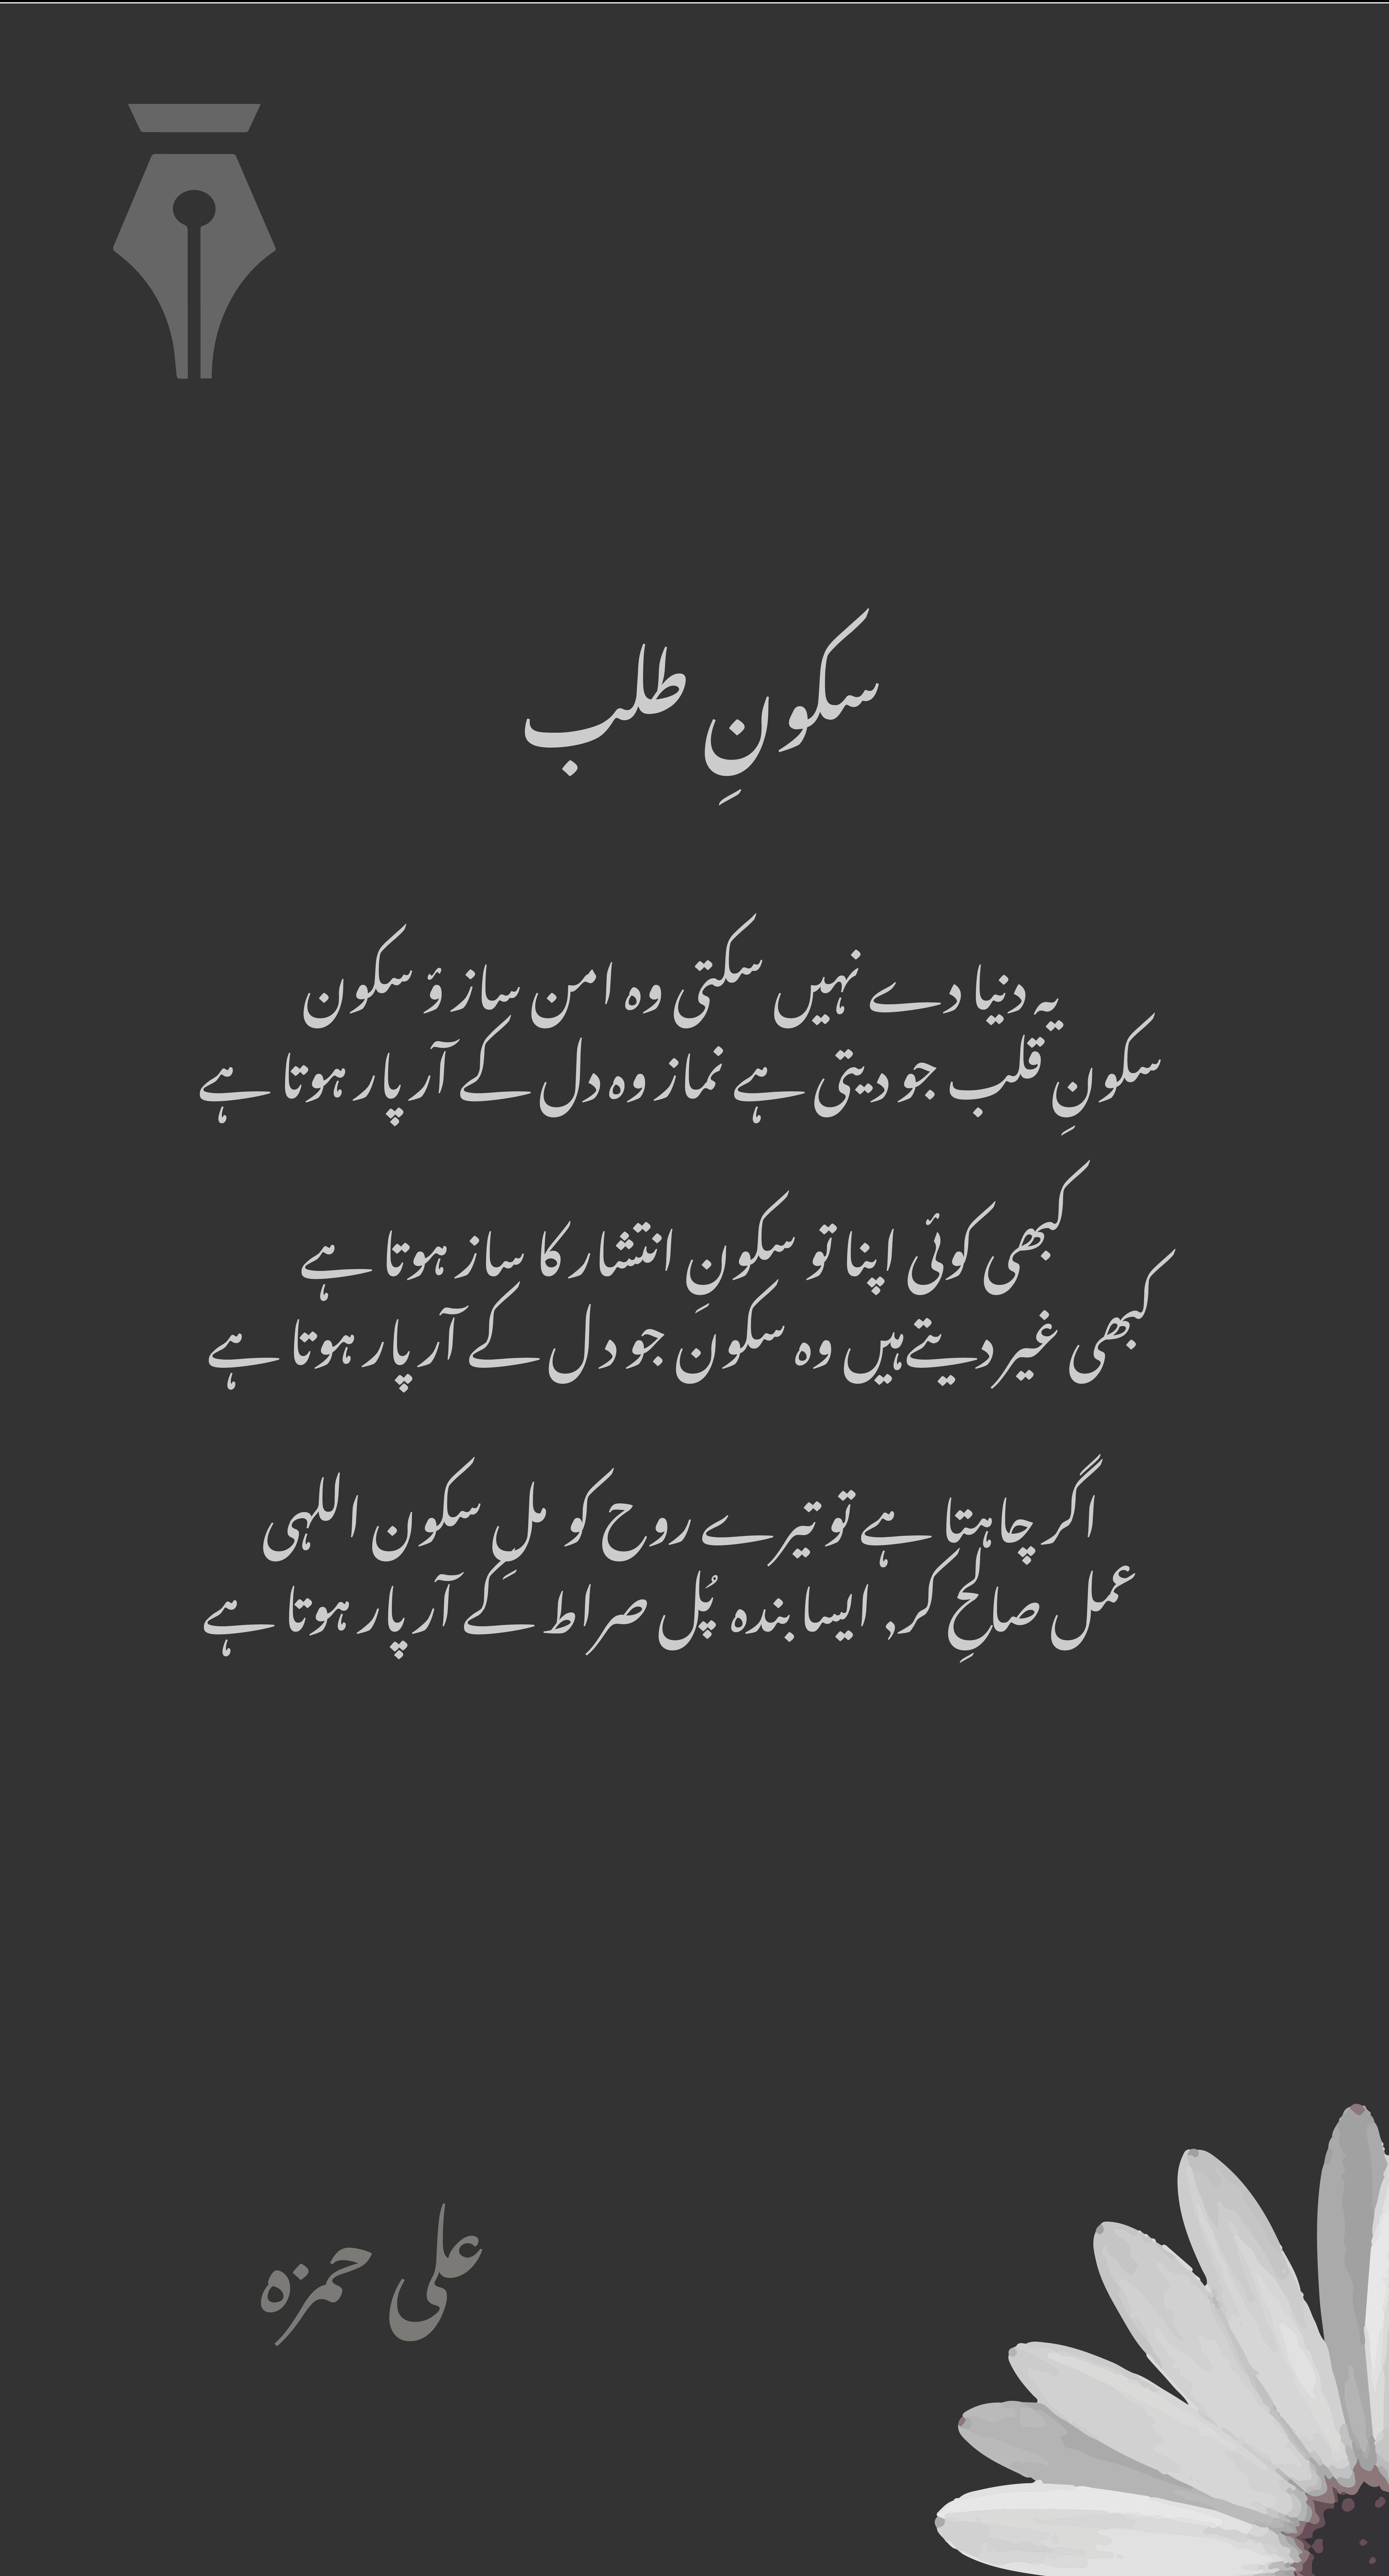 سکونِ طلب
یہ دنیا دے نہیں سکتی وہ امن ساز ؤ سکون
سکونِ قلب جو دیتی ہے نماز وہ دل کے آر پار ہوتا ہے
کبھی کوئی اپنا تو سکونِ انتشار کا ساز ہوتا ہے
کبھی غیر دیتے ہیں وہ سکون جو دل کے آر پار ہوتا ہے
اگر چاہتا ہے تو تیرے روح کو ملِ سکون اللہی
عمل صالحِ کر, ایسا بندہ پُل صراط کے آر پار ہوتا ہے
علی حمزہ